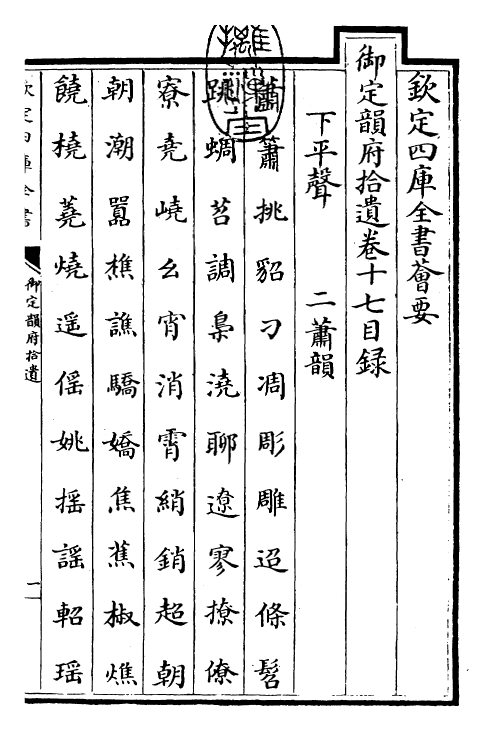 欽定四庫全書薈要
御定韻府拾遺卷十七目録
下平聲 二蕭韻
蕭簫挑貂刁凋彫雕迢條髫
跳蜩苕調梟澆聊遼寥撩僚
寮堯嶢幺宵消霄綃銷超朝
朝潮嚣樵譙驕嬌焦蕉椒燋
饒橈蕘燒遥傜姚揺謡軺瑶
欽定四庫全書
御定韻府拾遺
一